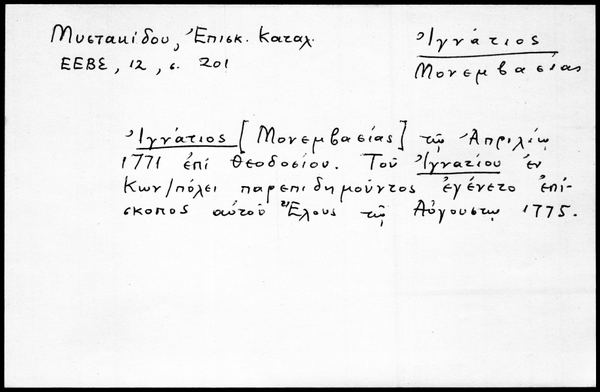 Μυστακίδου, Ἐπισκ. Καταλ.
ΕΕΒΣ, 12, σ. 201
Ἰγνάτιος
Μονεμβασίας
Ἰγνάτιος [Μονεμβασίας] τῷ Ἀπριλίῳ
1771 ἐπί Θεοδοσίου. Τοῦ Ἰγνατίου ἐν
Κων/πόλει παρεπιδημοῦντος ἐγένετο ἐπί-
σκοπος αὐτοῦ Ἕλους τῷ Αὐγουστῳ 1775.